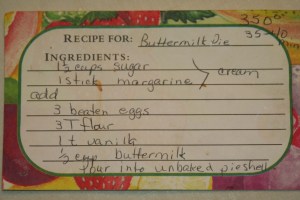 350°
35-40
min
RECIPE FOR: Buttermilk Pie
INGREDIENTS:
1½ cups sugar
1 stick margarine > cream
add
3 beaten eggs
3 T flour
1 t vanilla
½ cup buttermilk
Pour into unbaked pieshell